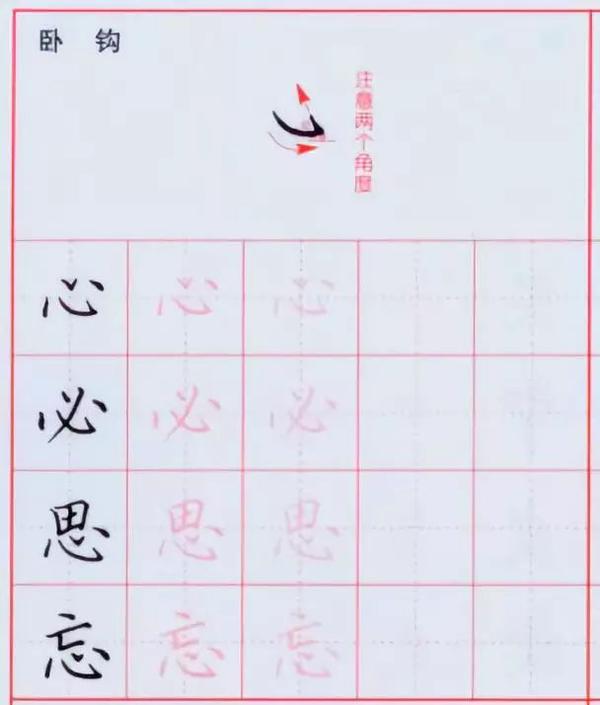 卧 钩
注意两个角度
心 心 心
必 必 必
思 思 思
忘 忘 忘